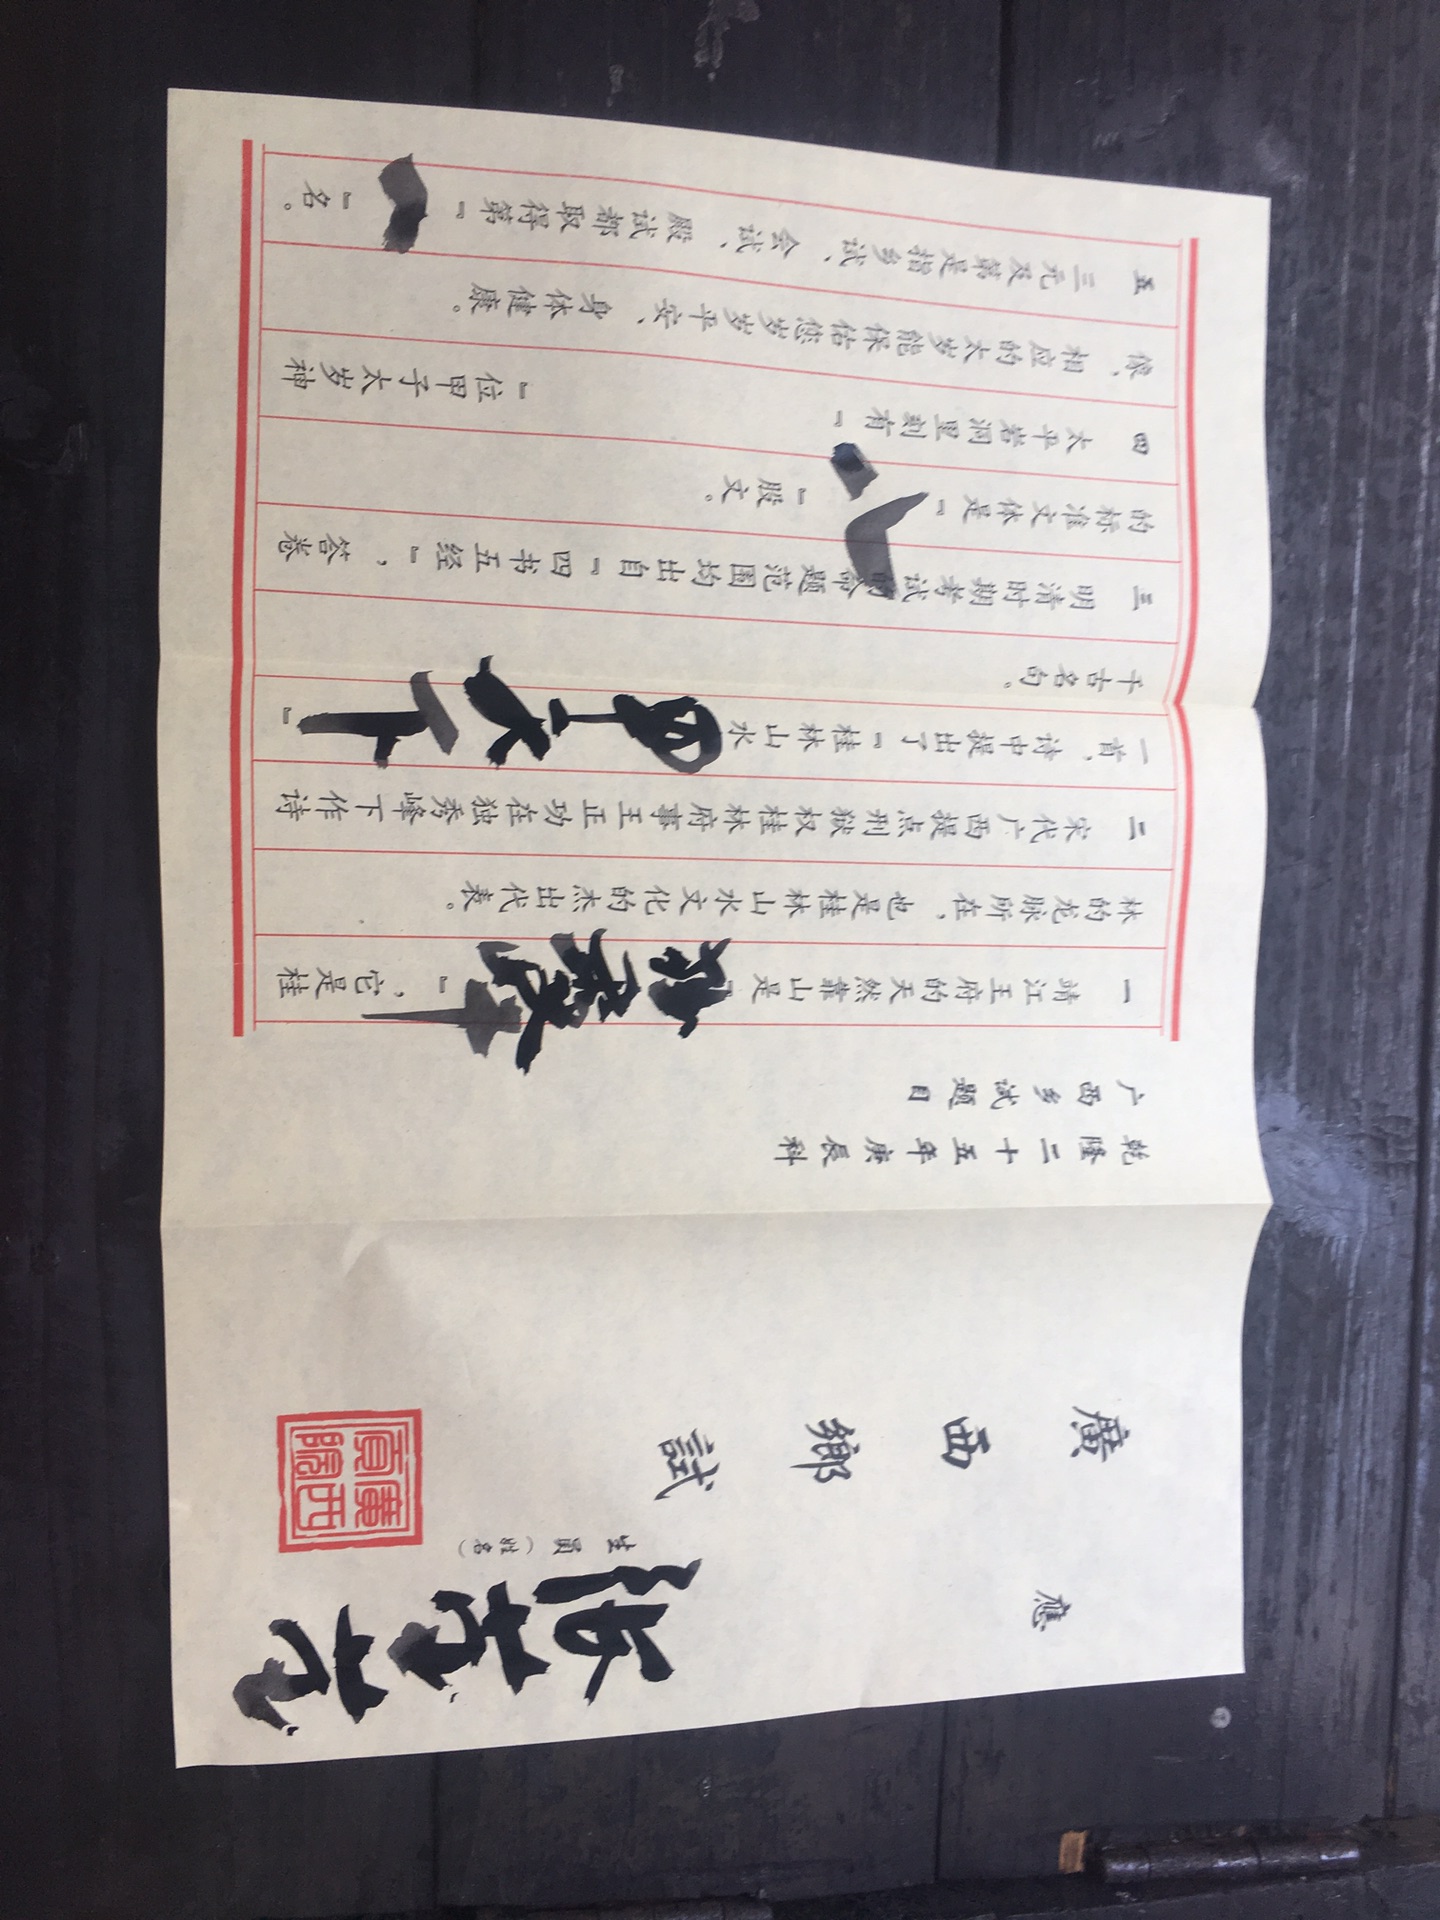 應
廣西鄉試
生員(姓名)
廣西貢院
乾隆二十五年庚辰科
广西乡试题目
一 靖江王府的天然靠山是『独秀峰』,它是桂
林的龙脉所在,也是桂林山水文化的杰出代表。
二 宋代广西提点刑狱权桂林府事王正功在独秀峰下作诗
一首,诗中提出了『桂林山水甲天下』
千古名句。
三 明清时期考试的命题范围均出自『四书五经』,答卷
的标准文体是『八』股文。
四 太平岩洞里刻有『 』位甲子太岁神
像,相应的太岁能保佑您岁岁平安、身体健康。
五 三元及第是指乡试、会试、殿试都取得第『一』名。